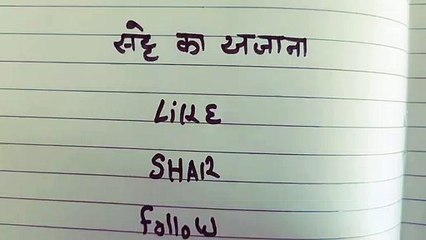 सट्टे का खजाना
LIKE
SHAR
follow